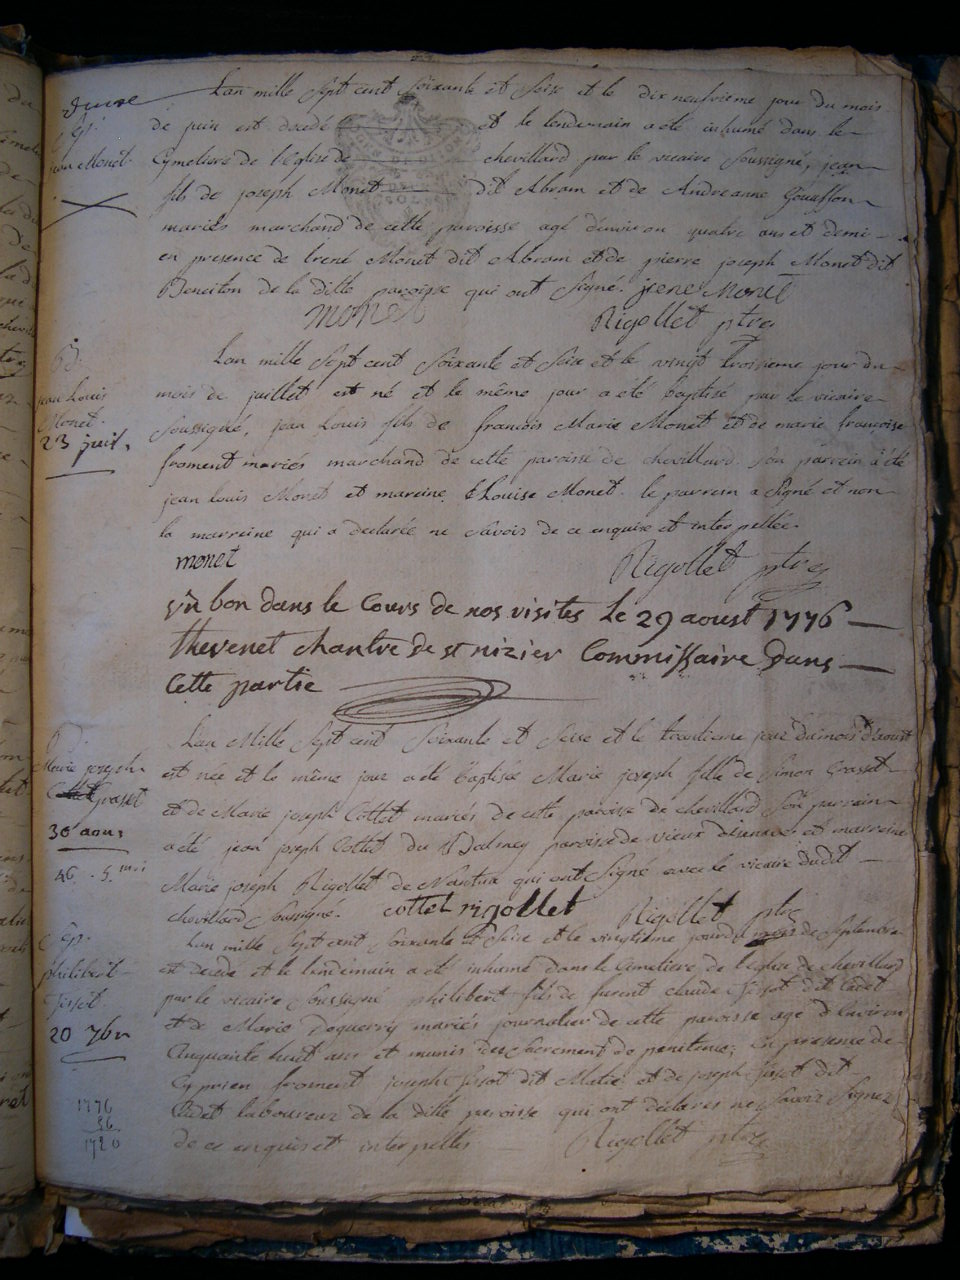 Lan mille Sept cent Soixante et Seise et le dix neufvieme jour du mois
Sep:
jean Monet
de juin est decedé et le lendemain a été inhumé dans le
Cymetiere de l'Eglise de chevillard par le vicaire Soussigné, jean
fils de joseph Monet dit Abram et de Andreanne
mariés marchand de cette paroisse agé d'environ quatre ans et demi
en presence de irené Monet dit Abram et de pierre joseph Monet dit
Beneiton de la ditte paroisse qui ont Signé. irene Monet
monet Rigollet ptre
B:
jean Louis
Monet.
23 juil.
Lan mille Sept cent Soixante et Seise et le vingt troisieme jour du
mois de juillet est né et le même jour a été baptisé par le vicaire
Soussigné, jean Louis fils de francois Marie Monet et de marie francoise
froment mariés marchand de cette paroisse de chevillard. Son parrein a été
jean Louis Monet et mareine Louise Monet. le parrein a Signé et non
la marreine qui a declarée ne Savoir de ce enquise et interpellée.
monet Rigollet ptre
Vû bon dans le Cours de nos visites Le 29 aoust 1776
thevenet chantre de st nizier Commissaire dans
Cette partie
Marie joseph
Grasset
30 aous
46 . 5.
Lan Mille Sept cent Soixante et Seise et le trentieme jour du mois d'aoust
est née et le même jour a été baptisée Marie joseph fille de Simon Grasset
et de Marie joseph Cottet mariés de cette paroisse de chevillard Son parrein
a été jean joseph Cottet du paroisse de vieux et marreine
Marie joseph Rigollet de Nantua qui ont Signé avec le vicaire dudit
chevillard Soussigné. cottet rigollet Rigollet ptre
Sep.
philibert
Tissot.
20 7bre
Lan mille Sept cent Soixante et Seise et le vingtieme jour du mois de Septembre
est decedé et le lendemain a été inhumé dans le Cimetiere de l'eglise de chevillard
par le vicaire Soussigné philibert fils de furent claude Tissot dit Cadet
et de Marie mariés journalier de cette paroisse agé d'Environ
Cinquante huit ans et munis des Sacrement de penitence; En presence de
Cyprien froment joseph Tissot dit et de joseph Tissot dit
Cadet laboureur de la ditte paroisse qui ont declarés ne Savoir Signer
de ce enquis et interpellés Rigollet ptre
1776
56
1720